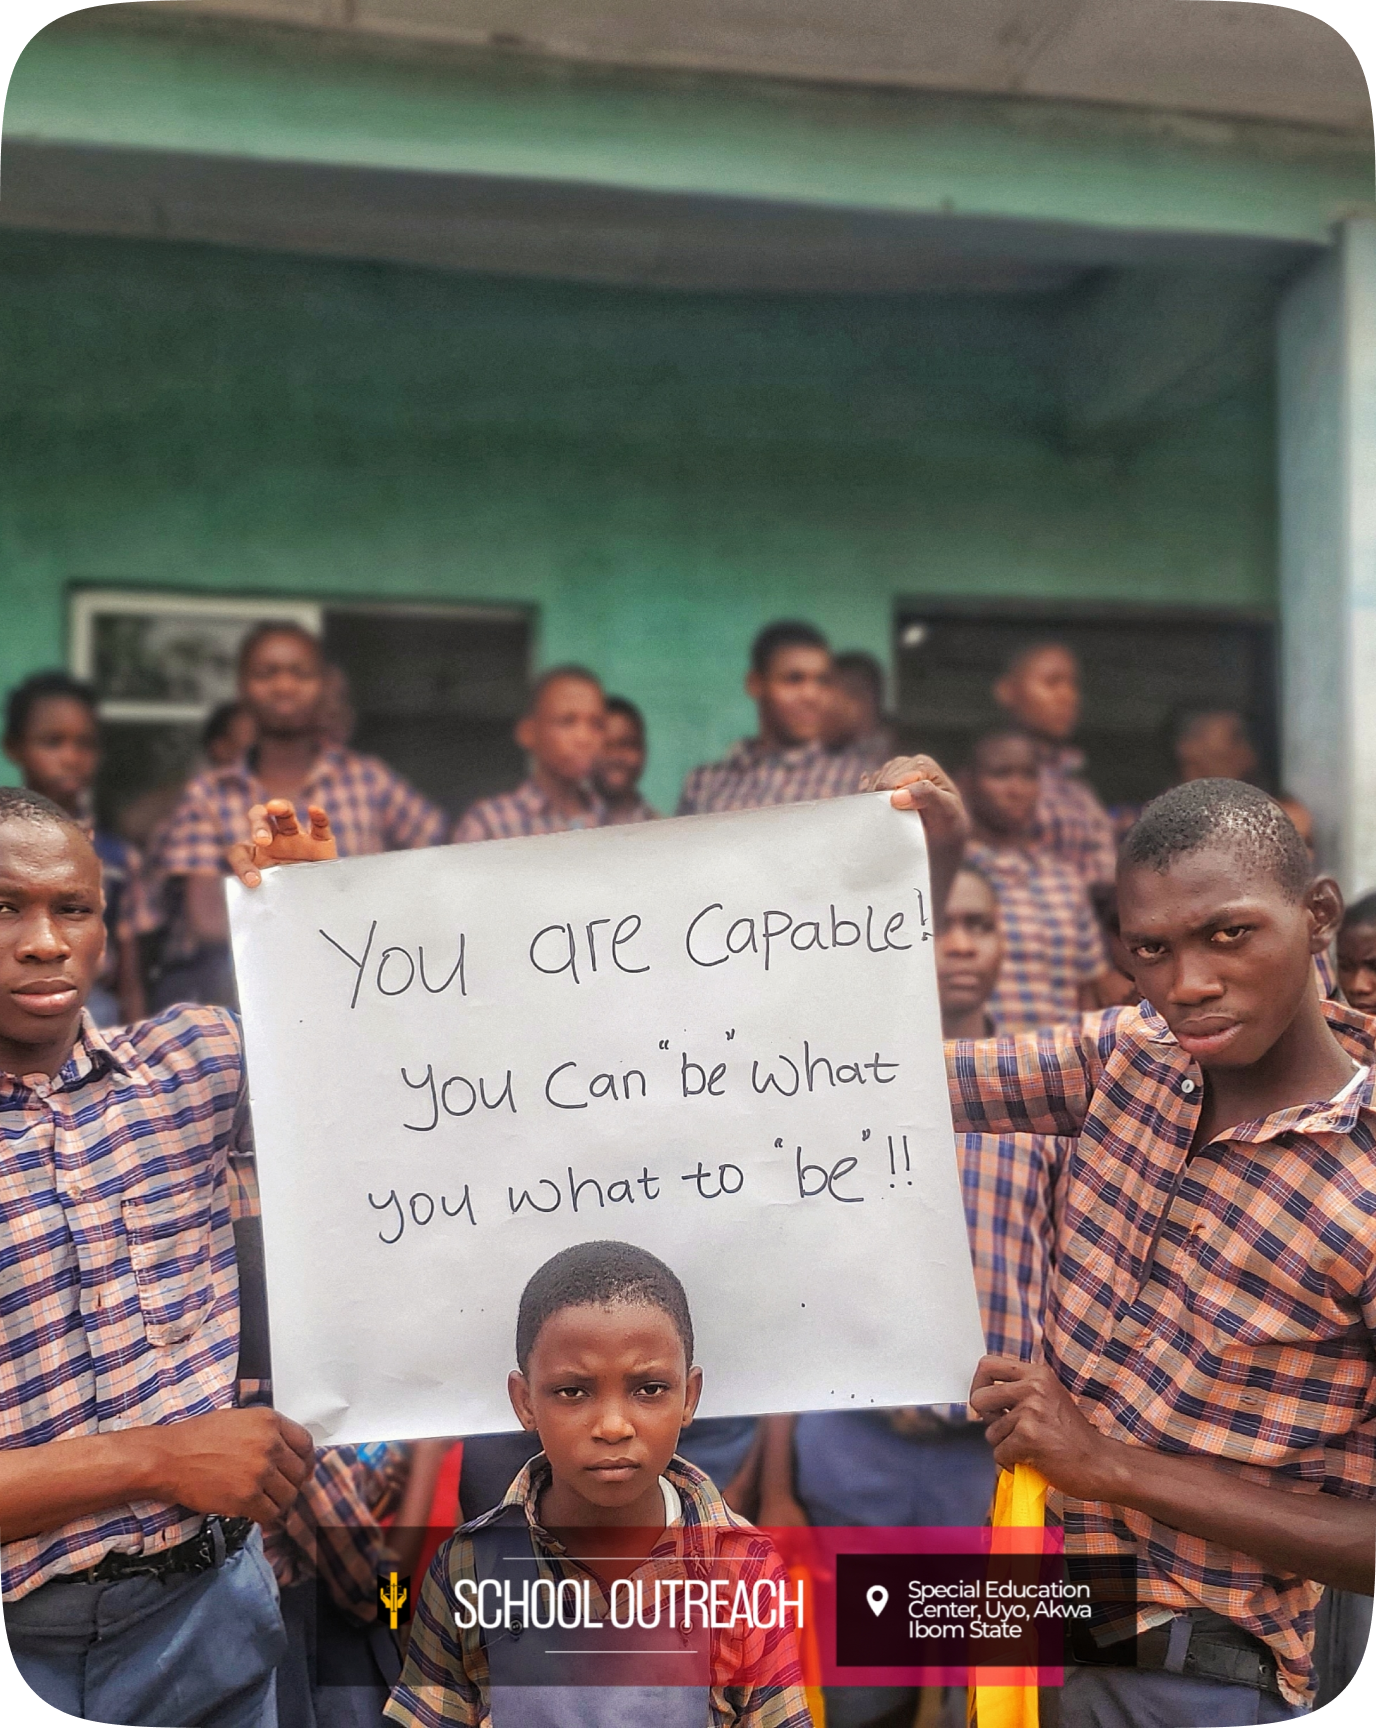 You are Capable!
you Can "be" what
you what to "be"!!
SCHOOL OUTREACH
Special Education
Center, Uyo, Akwa
Ibom State